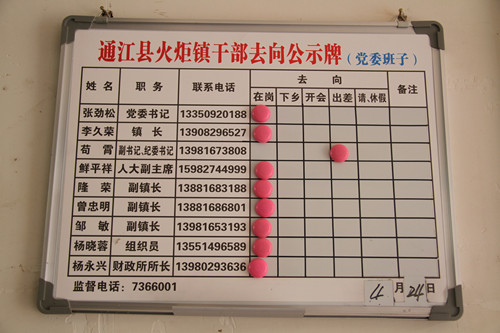 通江县火炬镇干部去向公示牌（党委班子）
姓名 职务 联系电话 去向 备注
在岗 下乡 开会 出差 请、休假
张劲松 党委书记 13350920188
李久荣 镇长 13908296527
苟霄 副书记、纪委书记 13981673808
鲜平祥 人大副主席 15982744999
隆荣 副镇长 13881683188
曾忠明 副镇长 13881686801
邹敏 副镇长 13981653193
杨晓蓉 组织员 13551496589
杨永兴 财政所所长 13980293636
监督电话：7366001 4月24日